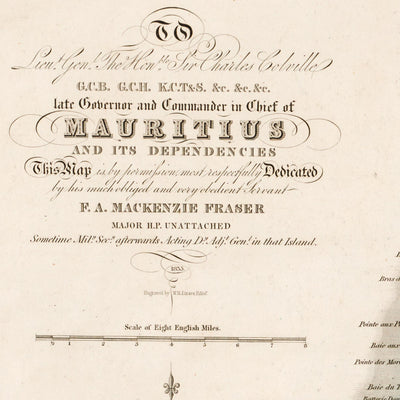 TO
Lieut. Genl. The Honble. Sir Charles Colville
G.C.B. G.C.H. K.C.T&S. &c. &c. &c.
late Governor and Commander in Chief of
MAURITIUS
AND ITS DEPENDENCIES
This Map is by permission, most respectfully Dedicated
by his much obliged and very obedient Servant
F. A. MACKENZIE FRASER
MAJOR H.P. UNATTACHED
Sometime Mily. Secy. afterwards Acting Dy. Adjt. Genl. in that Island.
1835.
Engraved by
Scale of Eight English Miles.
0 1 2 3 4 5 6 7 8
Bras d
Pointe aux P
Baie aux
Pointe des Mor
Baie du T
Batterie